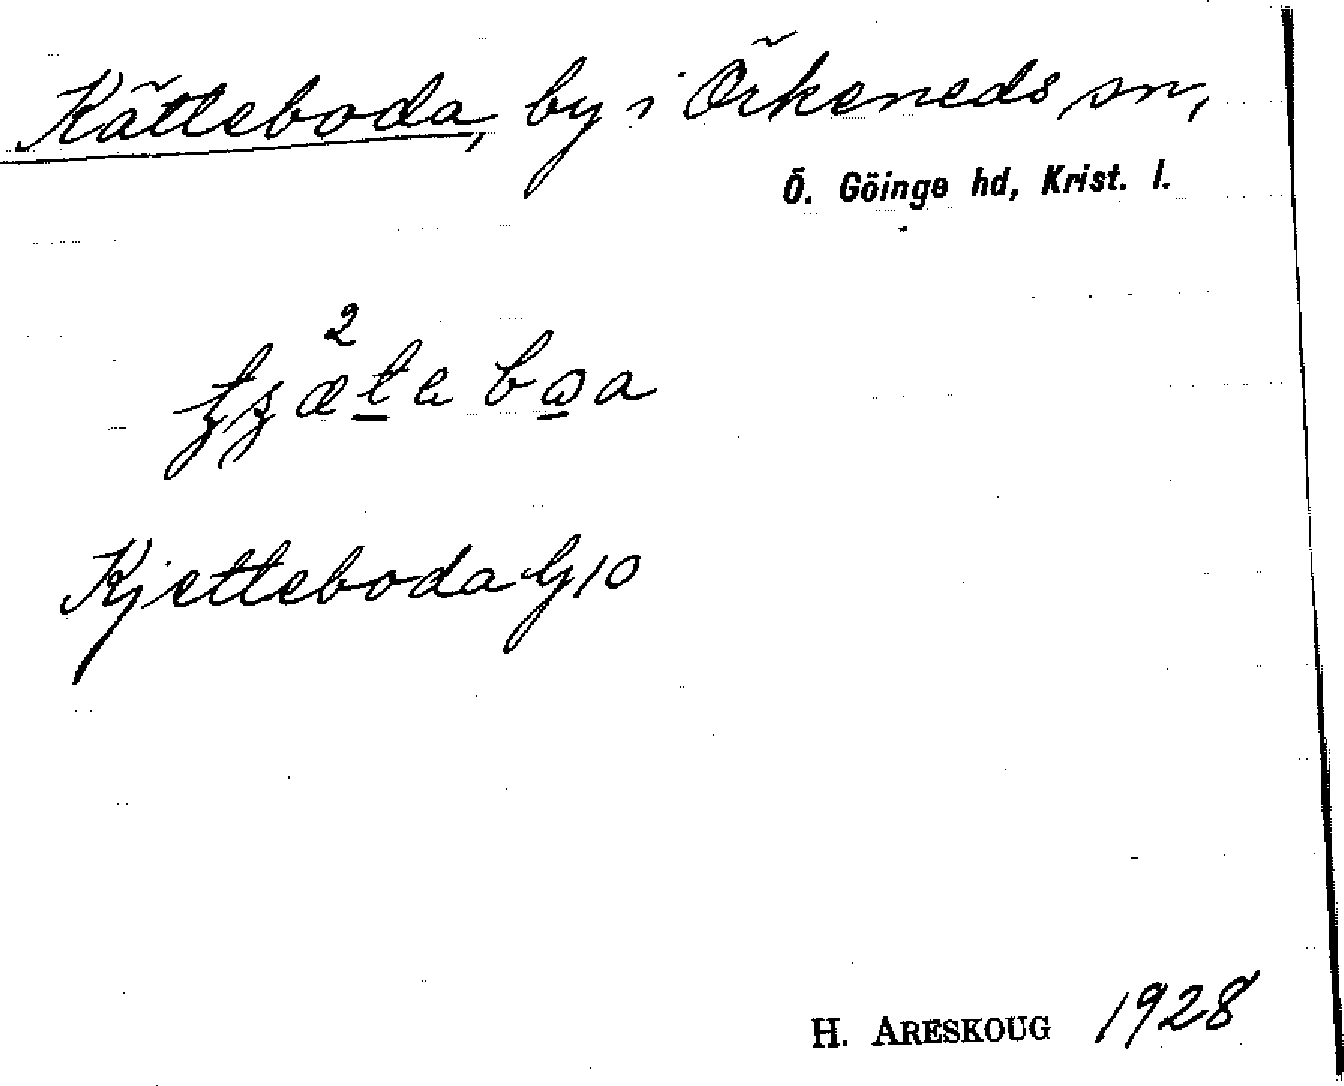 Kätteboda, by i Örkeneds sn,
Ö. Göinge hd, Krist. l.
2
Kjetteboda Gj10
H. ARESKOUG 1928